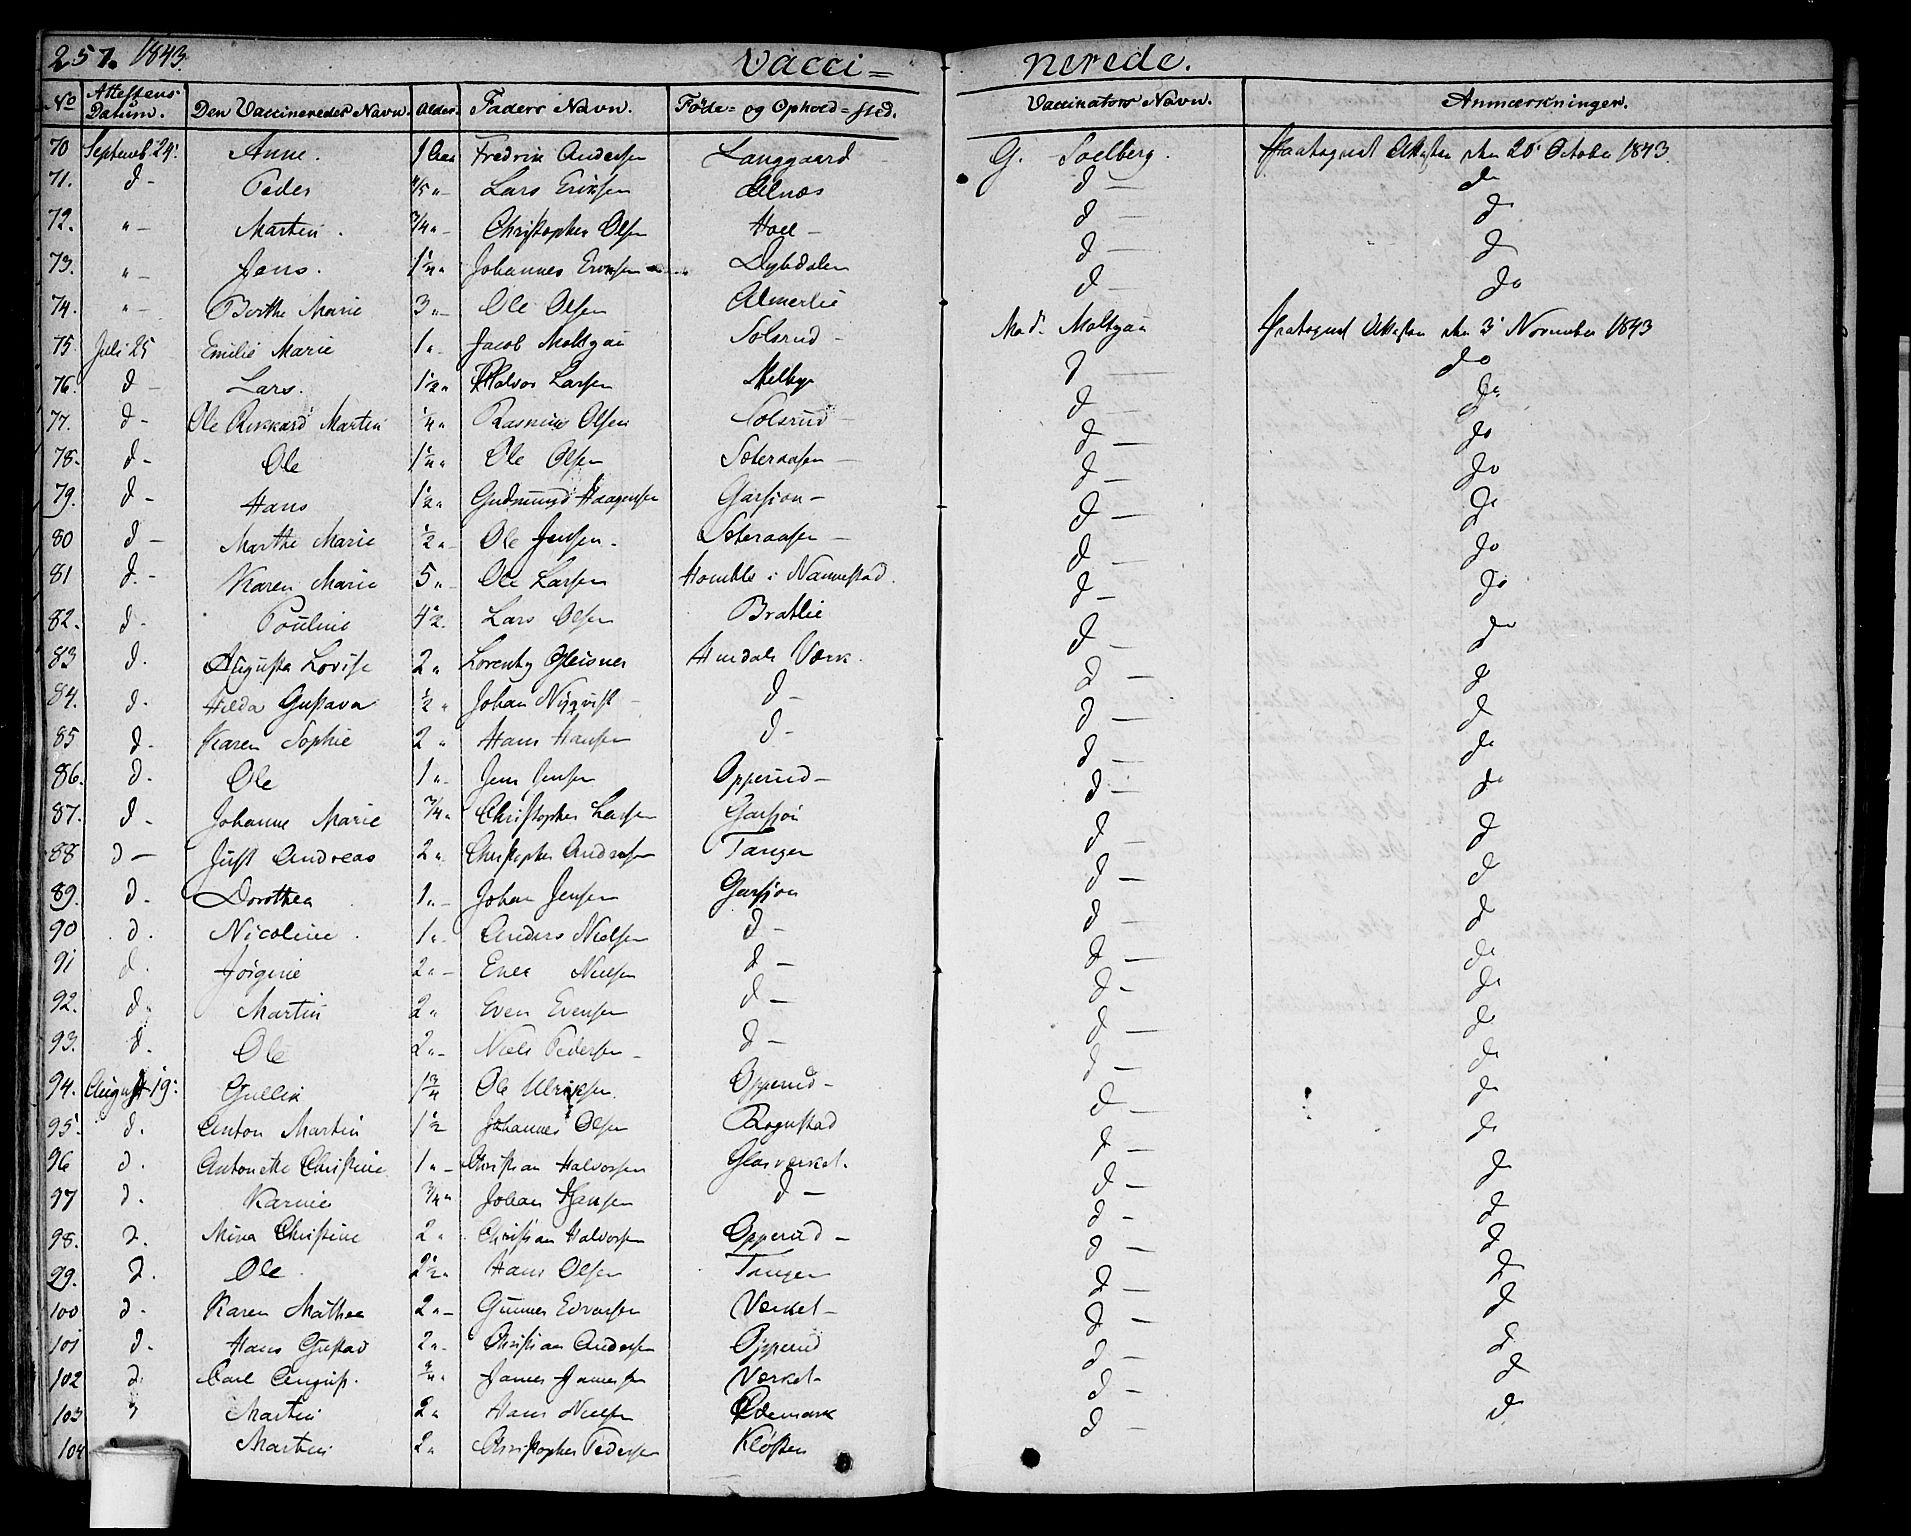 257. 1843. Vacci= nerede.
No Attestens Datum. Den Vaccineredes Navn. Alder. Faders Navn. Føde= og Ophold=sted. Vaccinators Navn. Anmærkninger.
70 Septemb. 24. Anne. 1 Aar Fredrik Andersen Langgaard G. Soelberg. Attesten den 20 October 1843.
71. d - Peder 4/5 " Lars Eriksen Ulnæs d - do
72. " - Martin. 3/4 " - Christopher Olsen Hoel - d - d
73. " - Jens. 1 1/4 " Johannes Eriksen Dybdalen d - d
74. " - Berthe Marie 3 " - Ole Olsen Almerlie d - do
75 Juli 25 Emilie Marie 1 " Jacob Moltzau Solsrud - Mad. Moltzau Attesten den 3 November 1843
76. d - Lars. 1 1/2 " Halvor Larsen Melbye d - do
77. d - Ole Rikkard Martin 1/4 " Rasmus Olsen Solsrud - d - do
78. d - Ole 1 1/4 " Ole Olsen Sæteraasen - d - do
79. d - Hans 1 1/2 " Gudmund Haagensen Garsjøn - d - do
80 d - Marthe Marie 1/2 " - Ole Jensen. Sæteraasen - d - do
81 d. - Karen Marie 5 " Ole Larsen Homble i Nannestad. d - do
82. d - Pouline 4 1/2 Lars Olsen Bratlie d - do
83 d. Augusta Lovise 2 " Hurdals Værk. d - do
84. d. Hilda Gustava 1/2 " Johan Nyqvist - d - d - d
85 d - Karen Sophie 2 " Hans Hansen d - d - d
86. d. Ole 1 " Jens Jensen Opperud - d - do
87. d - Johanne Marie 3/4 " Christopher Larsen Garsjøn d - do
88 d - Just Andreas 2 " Christopher Andersen Tangen d - d
89. d. Dorothea 1 " - Johan Jensen Garsjøn d - d
90 d. Nicoline. 1 " Anders Nielsen d - d - d
91 d. Jørgine 2 " - Even Nielsen d - d - do
92. d. Martin 2 " Even Evensen d - d - do
93. d. Ole 2 " - Niels Pedersen - d - d - do
94. August 19. Gullik 1 3/4 Ole Ulriksen. Opperud - d - do
95. d. Anton Martin 1 1/2 Johannes Olsen Rognstad d - do
96 d. Antonette Christine 1 " - Christian Halvorsen Glasværket. d - do
97 d. Karine 3/4 " Johan Hansen d - d - d
98. d. Mina Christine 2 " Christian Halvorsen Opperud - d - d
99. d. Ole 2 1/2 " Hans Olsen Tangen d - d
100 d. Karen Mathea 2 " - Gunner Edvarsen Værket - d - d
101 d. Hans Gustav 2 " - Christian Andersen Opperud d - d
102 d. Carl August. 3/4 " Værket - d - d
103 d Martin 2 " Hans Nielsen Ødemark d - d
104 Martin 2 " Christopher Pedersen Kløften d -